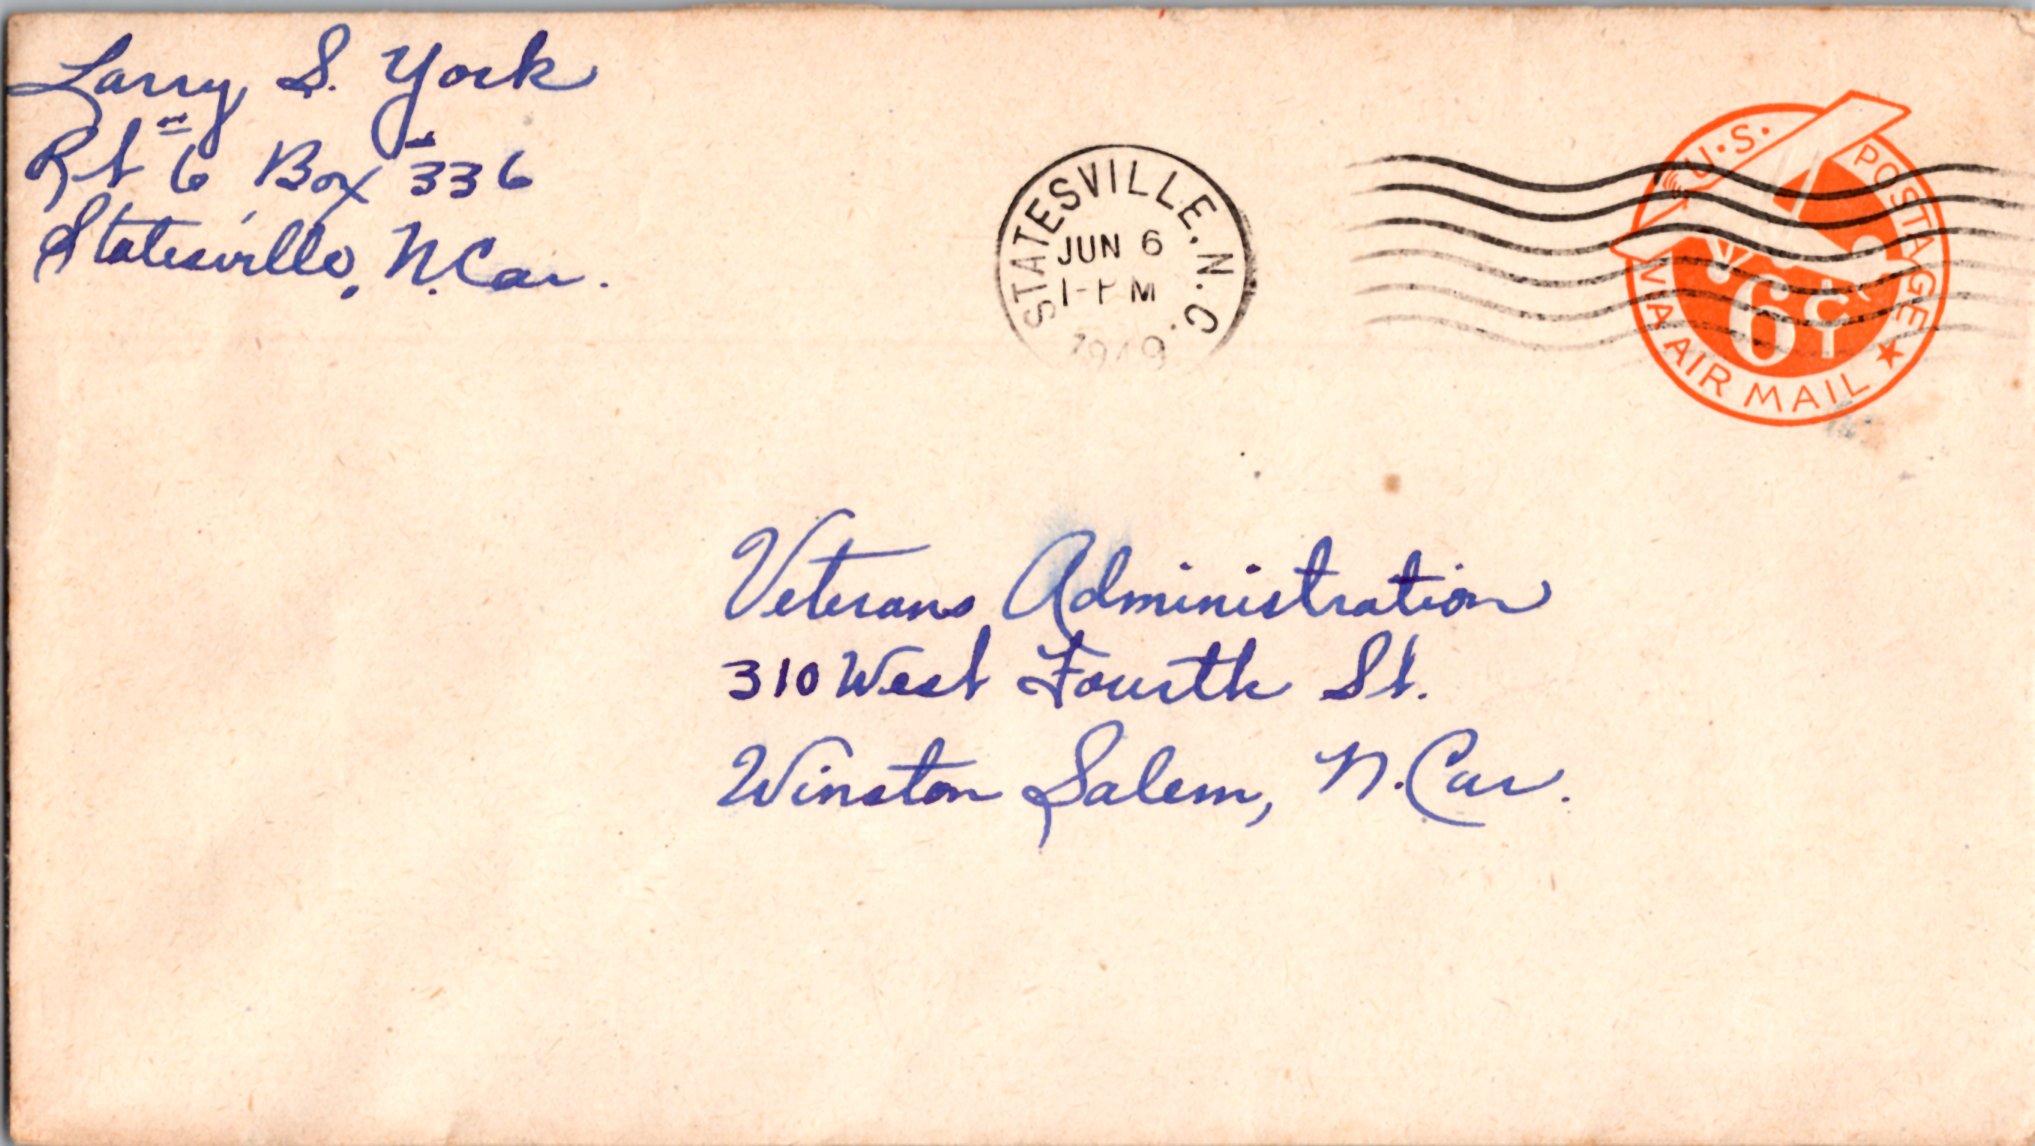 Larry S. York
Rt 6 Box 336
Statesville, N. Car.
STATESVILLE, N.C.
JUN 6
1-PM
1949
U.S. POSTAGE
6¢
VIA AIR MAIL
Veterans Administration
310 West Fourth St.
Winston Salem, N. Car.